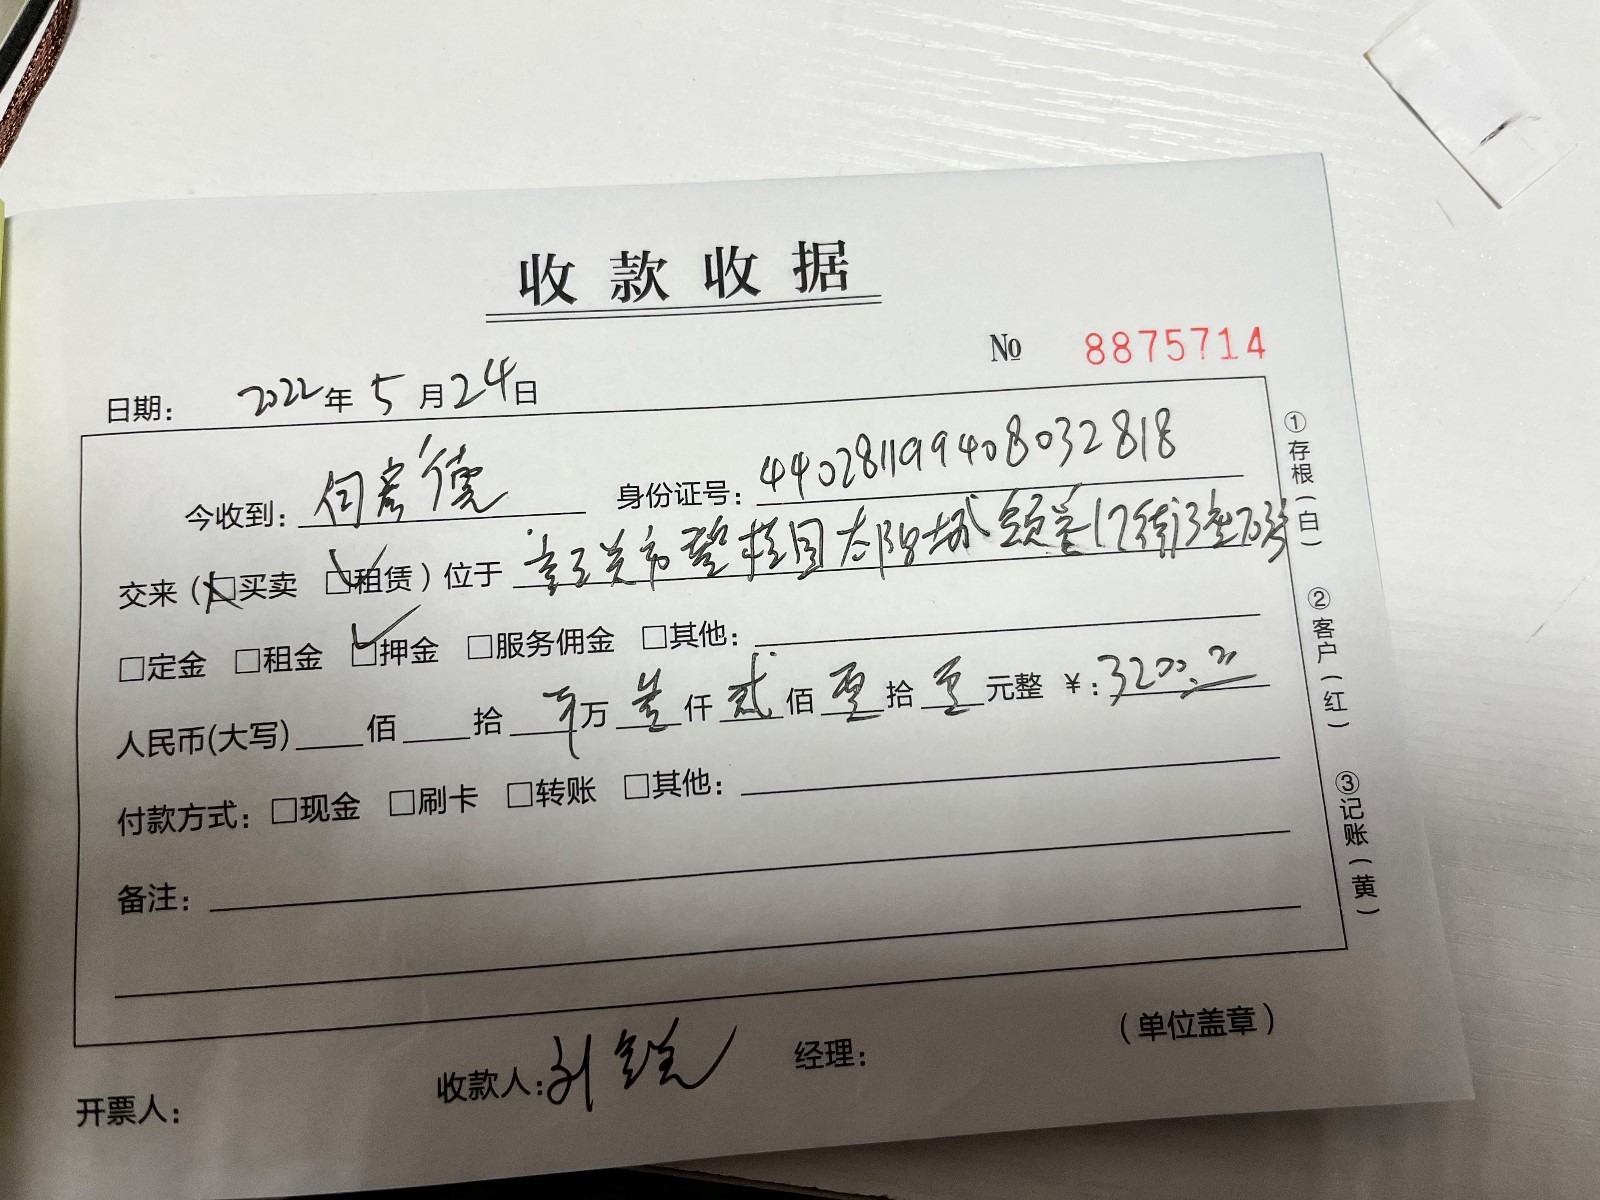 收款收据
№ 8875714
日期： 2022年5月24日
今收到：何彦德 身份证号：440281199408032818
交来（□买卖 ☑租赁）位于 韶关市碧桂园太阳城 17街13座
□定金 □租金 ☑押金 □服务佣金 □其他：
人民币(大写) 佰 拾 万叁仟贰佰零拾零元整 ￥:3200.00
付款方式：□现金 □刷卡 □转账 □其他：
备注：
（单位盖章）
开票人： 收款人:刘 经理：
①存根（白） ②客户（红） ③记账（黄）